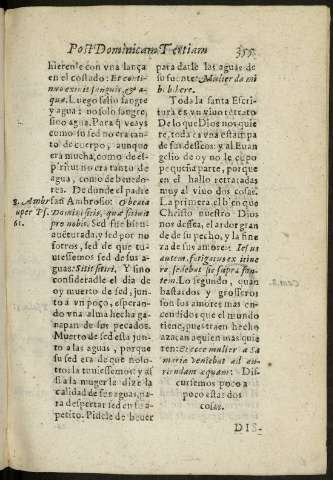 Post Dominicam Tertiam
355
hierenle con vna lança
en el costado: Et conti-
nuo exiuit sanguis, & a-
qua. Luego salio sangre
y agua: no solo sangre,
sino agua. Para q̃ veays
como su sed no era tan-
to de cuerpo, aunque
era mucha, como de es-
piritu: no era tanto de
agua, como de beuedo-
res. De donde el padre
san Ambrosio: O beata
Domini sitis, quæ sitiuit
pro nobis. Sed fue bien-
auẽturada, y sed por no-
sotros, sed de que tu-
uiessemos sed de sus a-
guas: Sitit sitiri. Y sino
consideradle el dia de
oy muerto de sed, jun-
to a vn poço, esperan-
do vna alma hecha ga-
napan de sus pecados.
Muerto de sed esta jun-
to a las aguas, porque
su sed era de que noso-
tros la tuuiessemos: y assi
a la muger la dize la
calidad de sus aguas, pa-
ra despertar sed en su a-
petito. Pidele de beuer
8. Ambr.
super Ps.
61.
para darle las aguas de
su fuente: Mulier da mi
hi bibere.
Toda la santa Escri-
tura es vn viuo retrato
De lo que Dios nos quie
re, toda es vna estampa
de sus desseos: y al Euan
gelio de oy no le cupo
pequeña parte, porque
en el hallo retratadas
muy al viuo dos cosas.
La primera el biẽ que
Christo nuestro Dios
nos dessea, el ardor gran
de de su pecho, y la fine
za de sus amores: Iesus
autem fatigatus ex itine
re, sedebat sic supra fon-
tem. Lo segundo, quan
bastardos y grosseros
son los amores mas en-
cendidos que el mundo
tiene, pues traen hecho
azacan aquien mas quie
ren: Ecce mulier a Sa
maria veniebat ad au-
riendam aquam: Dis-
curiemos poco a
poco estas dos
cosas.
DIS-